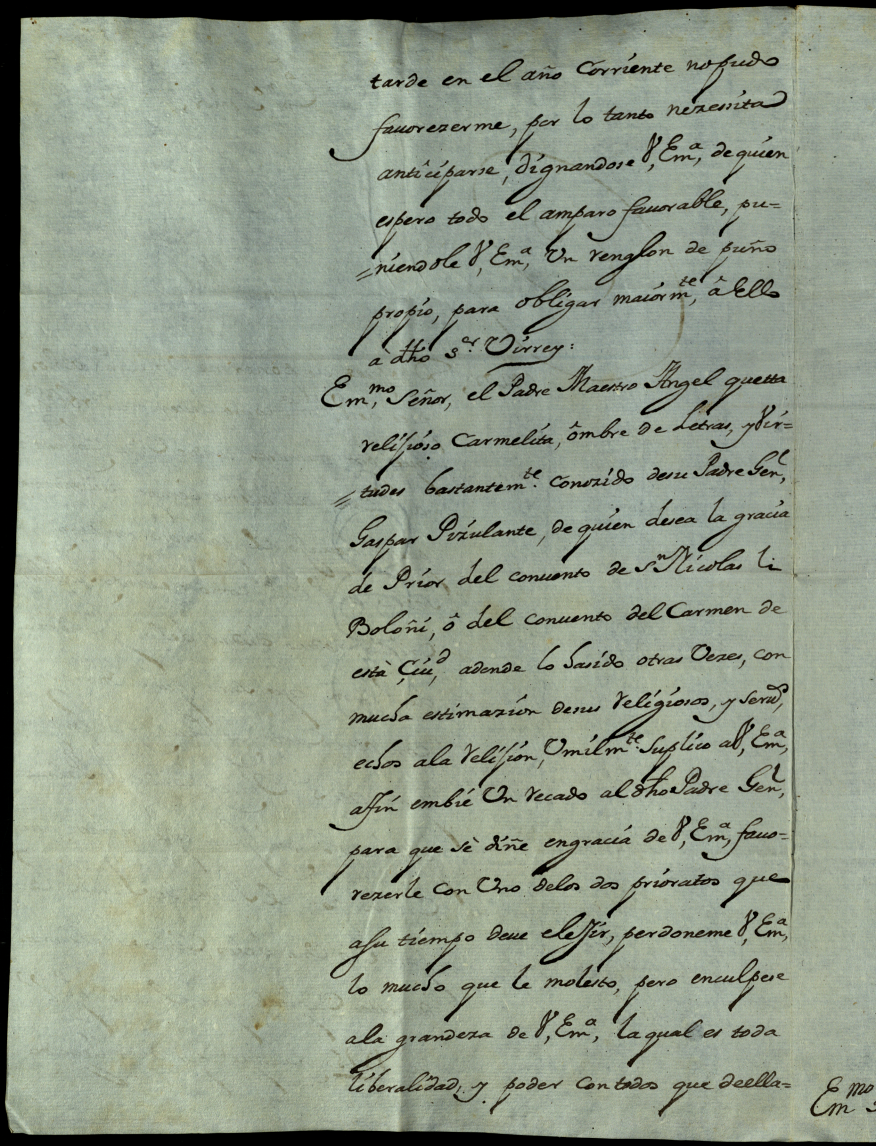 tarde en el año Corriente no pudo
fauorezerme, por lo tanto nezessita
anticiparse, dignandose V, Em.ª, de quien
espero todo el amparo fauorable, pu=
=niendole V, Em.ª, Un renglon de puño
propio, para obligar maiorm.te, â Ello
a dho s.or Virrey:
Em.mo, Señor, el Padre Maestro Angel quetta
relijioso Carmelita, ômbre de Letras, y Vir=
=tudes bastantem.te conozido desu Padre Gen.l,
Gaspar Pizulante, de quien desea la gracia
de Prior del conuento de s.n Nicolas li
Boloñi, ô del conuento del Carmen de
està Çiu.d, adende lo hasido otras Vezes, con
mucha estimazion desus religiosos, y seru.os,
echos ala relijion, Umilm.te Suplico a V, Em.ª,
affin embie Un recado al dho Padre Gen.l,
para que sè diñe engracia de V, Em.ª, fauo=
rezerle con Uno delos dos prioratos que
asu tiempo deue eleffir, perdoneme V, Em.ª,
lo mucho que le molesto, pero enculpese
ala grandeza de V, Em.ª, la qual es toda
liberalidad, y poder con todos que deella=
Em.mo